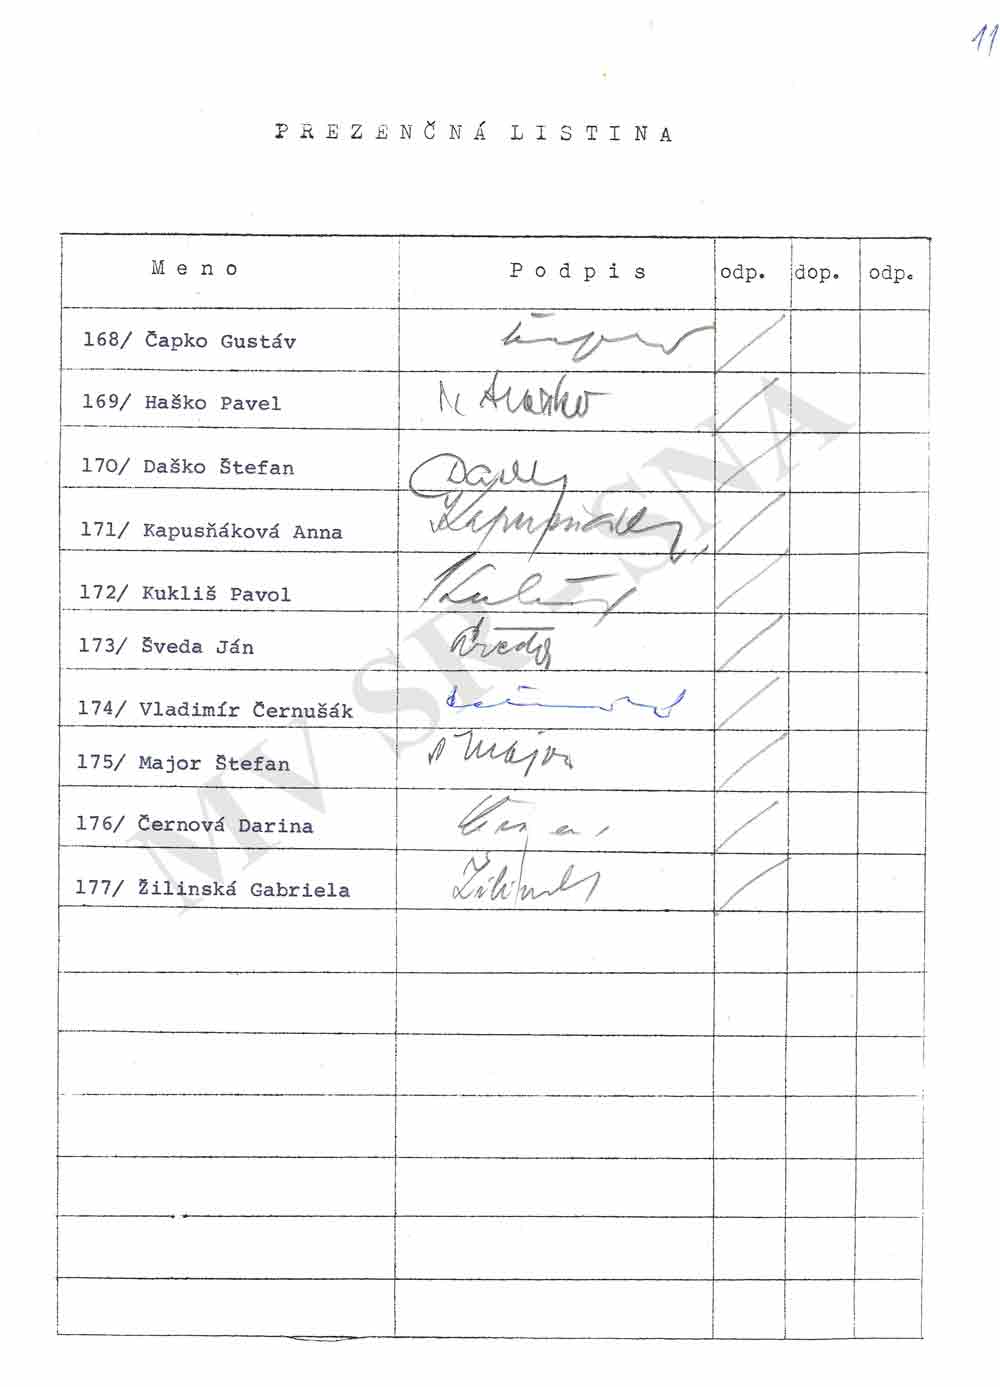 11
P R E Z E N Č N Á  L I S T I N A
M e n o P o d p i s odp. dop. odp.
168/ Čapko Gustáv
169/ Haško Pavel Haško
170/ Daško Štefan
171/ Kapusňáková Anna
172/ Kukliš Pavol
173/ Šveda Ján
174/ Vladimír Černušák
175/ Major Štefan Major
176/ Černová Darina
177/ Žilinská Gabriela
MV SR - SNA